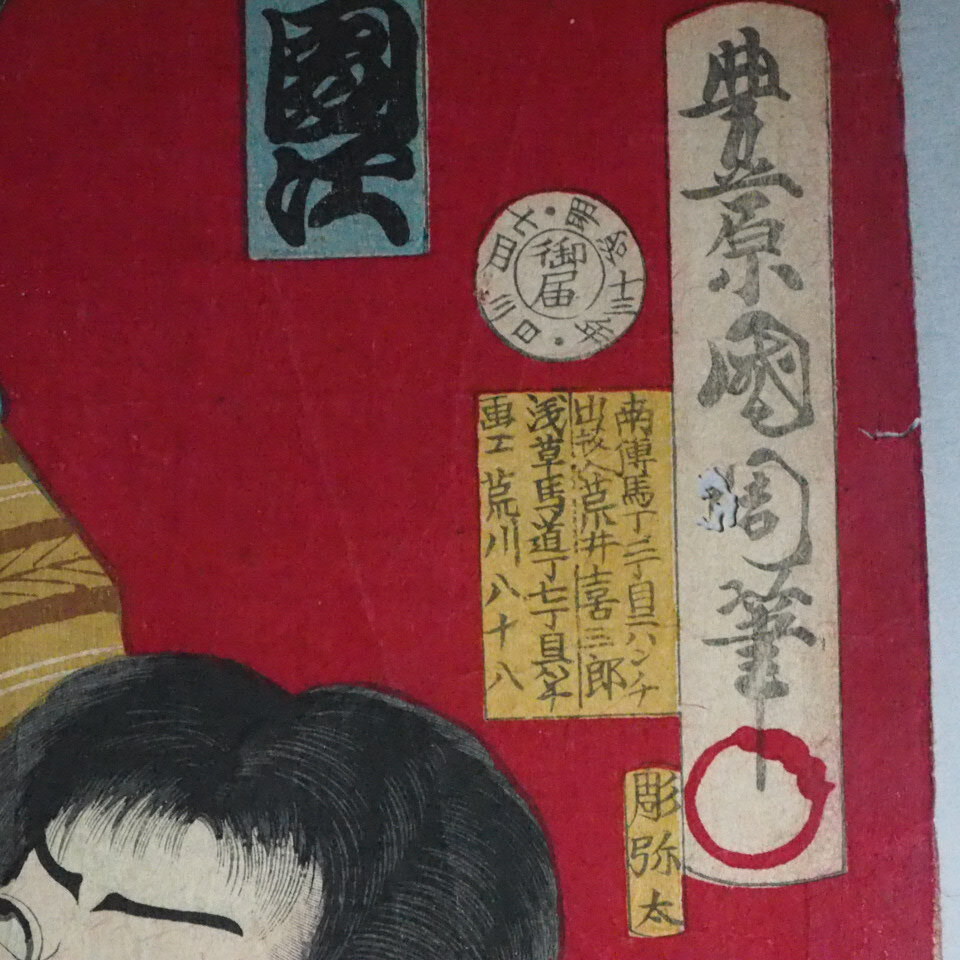 豊原國周筆
御届
明治十三年・七月三日・
南傳馬丁二丁目三ハンチ
出板人荒井喜三郎
浅草馬道丁七丁目
画工荒川八十八
彫弥太
國江